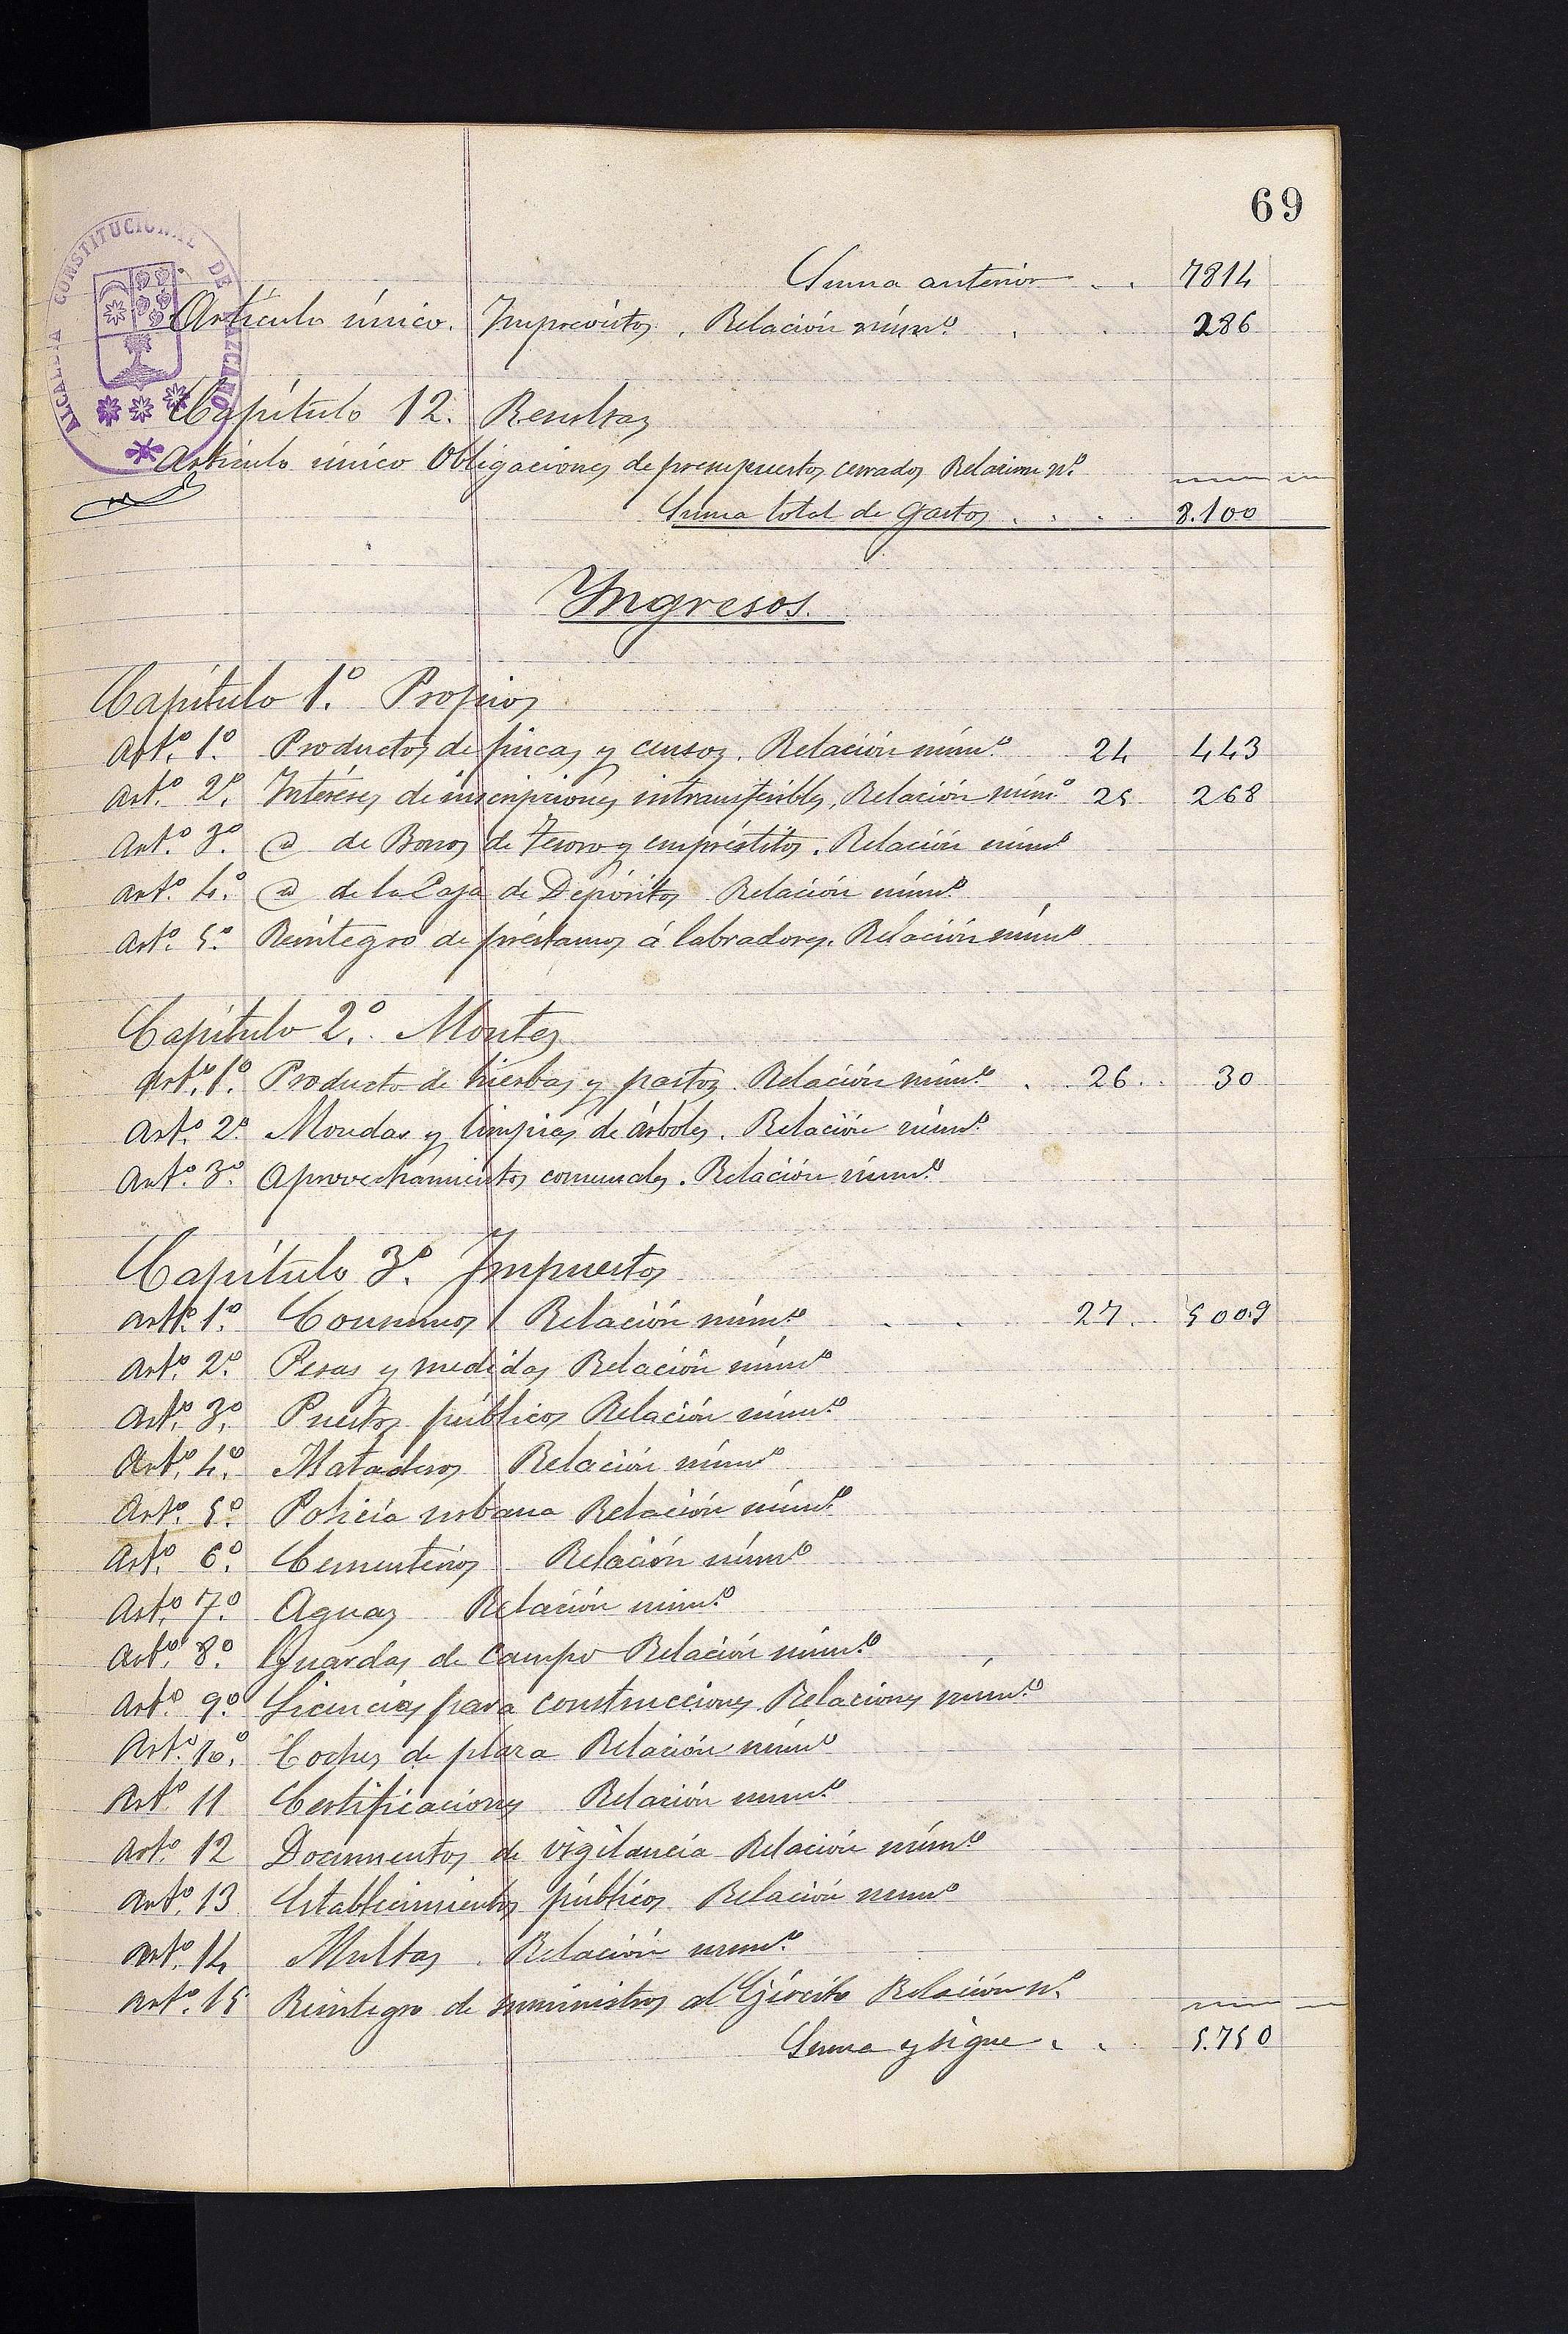 69
ALCALDIA CONSTITUCIONAL DE
Suma anterior . . 7814
Artículo único. Imprevistos. Relación núm.º . . 286
Capítulo 12. Resultas
Artículo único Obligaciones de presupuestos cerrados Relacion n.º
Suma total de Gastos . . . . 8.100
Yngresos.
Capítulo 1.º Propios
Art.º 1.º Productos de fincas y censos. Relación núm.º 24 443
Art.º 2.º Intéreses de inscripciones intransferibles. Relación núm.º 25 268
Art.º 3.º @ de Bonos de Tesoro y empréstitos. Relación núm.º
Art.º 4.º @ de la Caja de Depósitos Relación núm.º
Art.º 5.º Reintegro de préstamos á labradores. Relación núm.º
Capítulo 2.º Montes
Art.º 1.º Producto de hierbas y pastos. Relación núm.º . 26 . . 30
Art.º 2.º Mondas y limpias de árboles. Relación núm.º
Art.º 3.º Aprovechamientos comunales. Relación núm.º
Capítulo 3.º Impuestos
Art.º 1.º Consumos Relación núm.º . . . 27 . . 5009
Art.º 2.º Pesas y medidas Relación núm.º
Art.º 3.º Puestos públicos Relación núm.º
Art.º 4.º Mataderos Relación núm.º
Art.º 5.º Policía urbana Relación núm.º
Art.º 6.º Cementerios Relación núm.º
Art.º 7.º Aguas Relación núm.º
Art.º 8.º Guardas de campo Relación núm.º
Art.º 9.º Licencias para construcciones Relaciones núm.º
Art.º 10.º Coches de plaza Relación núm.º
Art.º 11 Certificaciones Relación núm.º
Art.º 12 Documentos de vigilancia Relación núm.º
Art.º 13 Establecimientos públicos Relación núm.º
Art.º 14 Multas. Relación núm.º
Art.º 15 Reintegro de suministros al Ejército Relación n.º
Suma y sigue . . 5.750